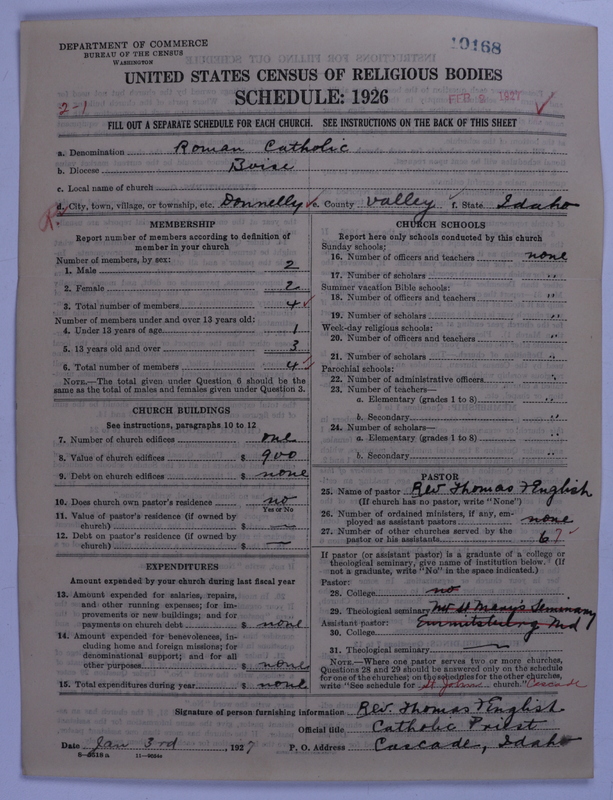 DEPARTMENT OF COMMERCE
BUREAU OF THE CENSUS
WASHINGTON
10168
UNITED STATES CENSUS OF RELIGIOUS BODIES
SCHEDULE: 1926
2-1
FEB 2 1927
FILL OUT A SEPARATE SCHEDULE FOR EACH CHURCH. SEE INSTRUCTIONS ON THE BACK OF THIS SHEET
a. Denomination Roman Catholic
b. Diocese Boise
c. Local name of church
d. City, town, village, or township, etc. Donnelly e. County Valley f. State Idaho
MEMBERSHIP
Report number of members according to definition of
member in your church
Number of members, by sex:
1. Male 2
2. Female 2
3. Total number of members 4
Number of members under and over 13 years old:
4. Under 13 years of age 1
5. 13 years old and over 3
6. Total number of members 4
NOTE.—The total given under Question 6 should be
same as the total of males and females given under Question 3.
CHURCH BUILDINGS
See instructions, paragraphs 10 to 12
7. Number of church edifices one
8. Value of church edifices $ 900
9. Debt on church edifices $ none
10. Does church own pastor's residence no
Yes or No
11. Value of pastor's residence (if owned by
church) $ —
12. Debt on pastor's residence (if owned by
church) $ —
EXPENDITURES
Amount expended by your church during last fiscal year
13. Amount expended for salaries, repairs,
and other running expenses; for im-
provements or new buildings; and for
payments on church debt $ none
14. Amount expended for benevolences, in-
cluding home and foreign missions; for
denominational support; and for all
other purposes $ none
15. Total expenditures during year $ none
CHURCH SCHOOLS
Report here only schools conducted by this church
Sunday schools:
16. Number of officers and teachers none
17. Number of scholars "
Summer vacation Bible schools:
18. Number of officers and teachers "
19. Number of scholars "
Week-day religious schools:
20. Number of officers and teachers "
21. Number of scholars "
Parochial schools:
22. Number of administrative officers "
23. Number of teachers—
a. Elementary (grades 1 to 8) "
b. Secondary "
24. Number of scholars—
a. Elementary (grades 1 to 8) "
b. Secondary "
PASTOR
25. Name of pastor Rev. Thomas F English
(If church has no pastor, write "None")
26. Number of ordained ministers, if any, em-
ployed as assistant pastors none
27. Number of other churches served by the
pastor or his assistants 6 7
If pastor (or assistant pastor) is a graduate of a college or
theological seminary, give name of institution below. (If
not a graduate, write "No" in the space indicated.)
Pastor:
28. College no
29. Theological seminary Mt St Mary's Seminary
Assistant pastor: Emmitsburg Md
30. College
31. Theological seminary —
NOTE.—Where one pastor serves two or more churches,
Questions 28 and 29 should be answered only on the schedule
for one of the churches; on the schedules for the other churches,
write "See schedule for St Johns church." Cascade
Signature of person furnishing information Rev. Thomas F English
Official title Catholic Priest
Date Jan 3rd, 1927 P. O. Address Cascade, Idaho